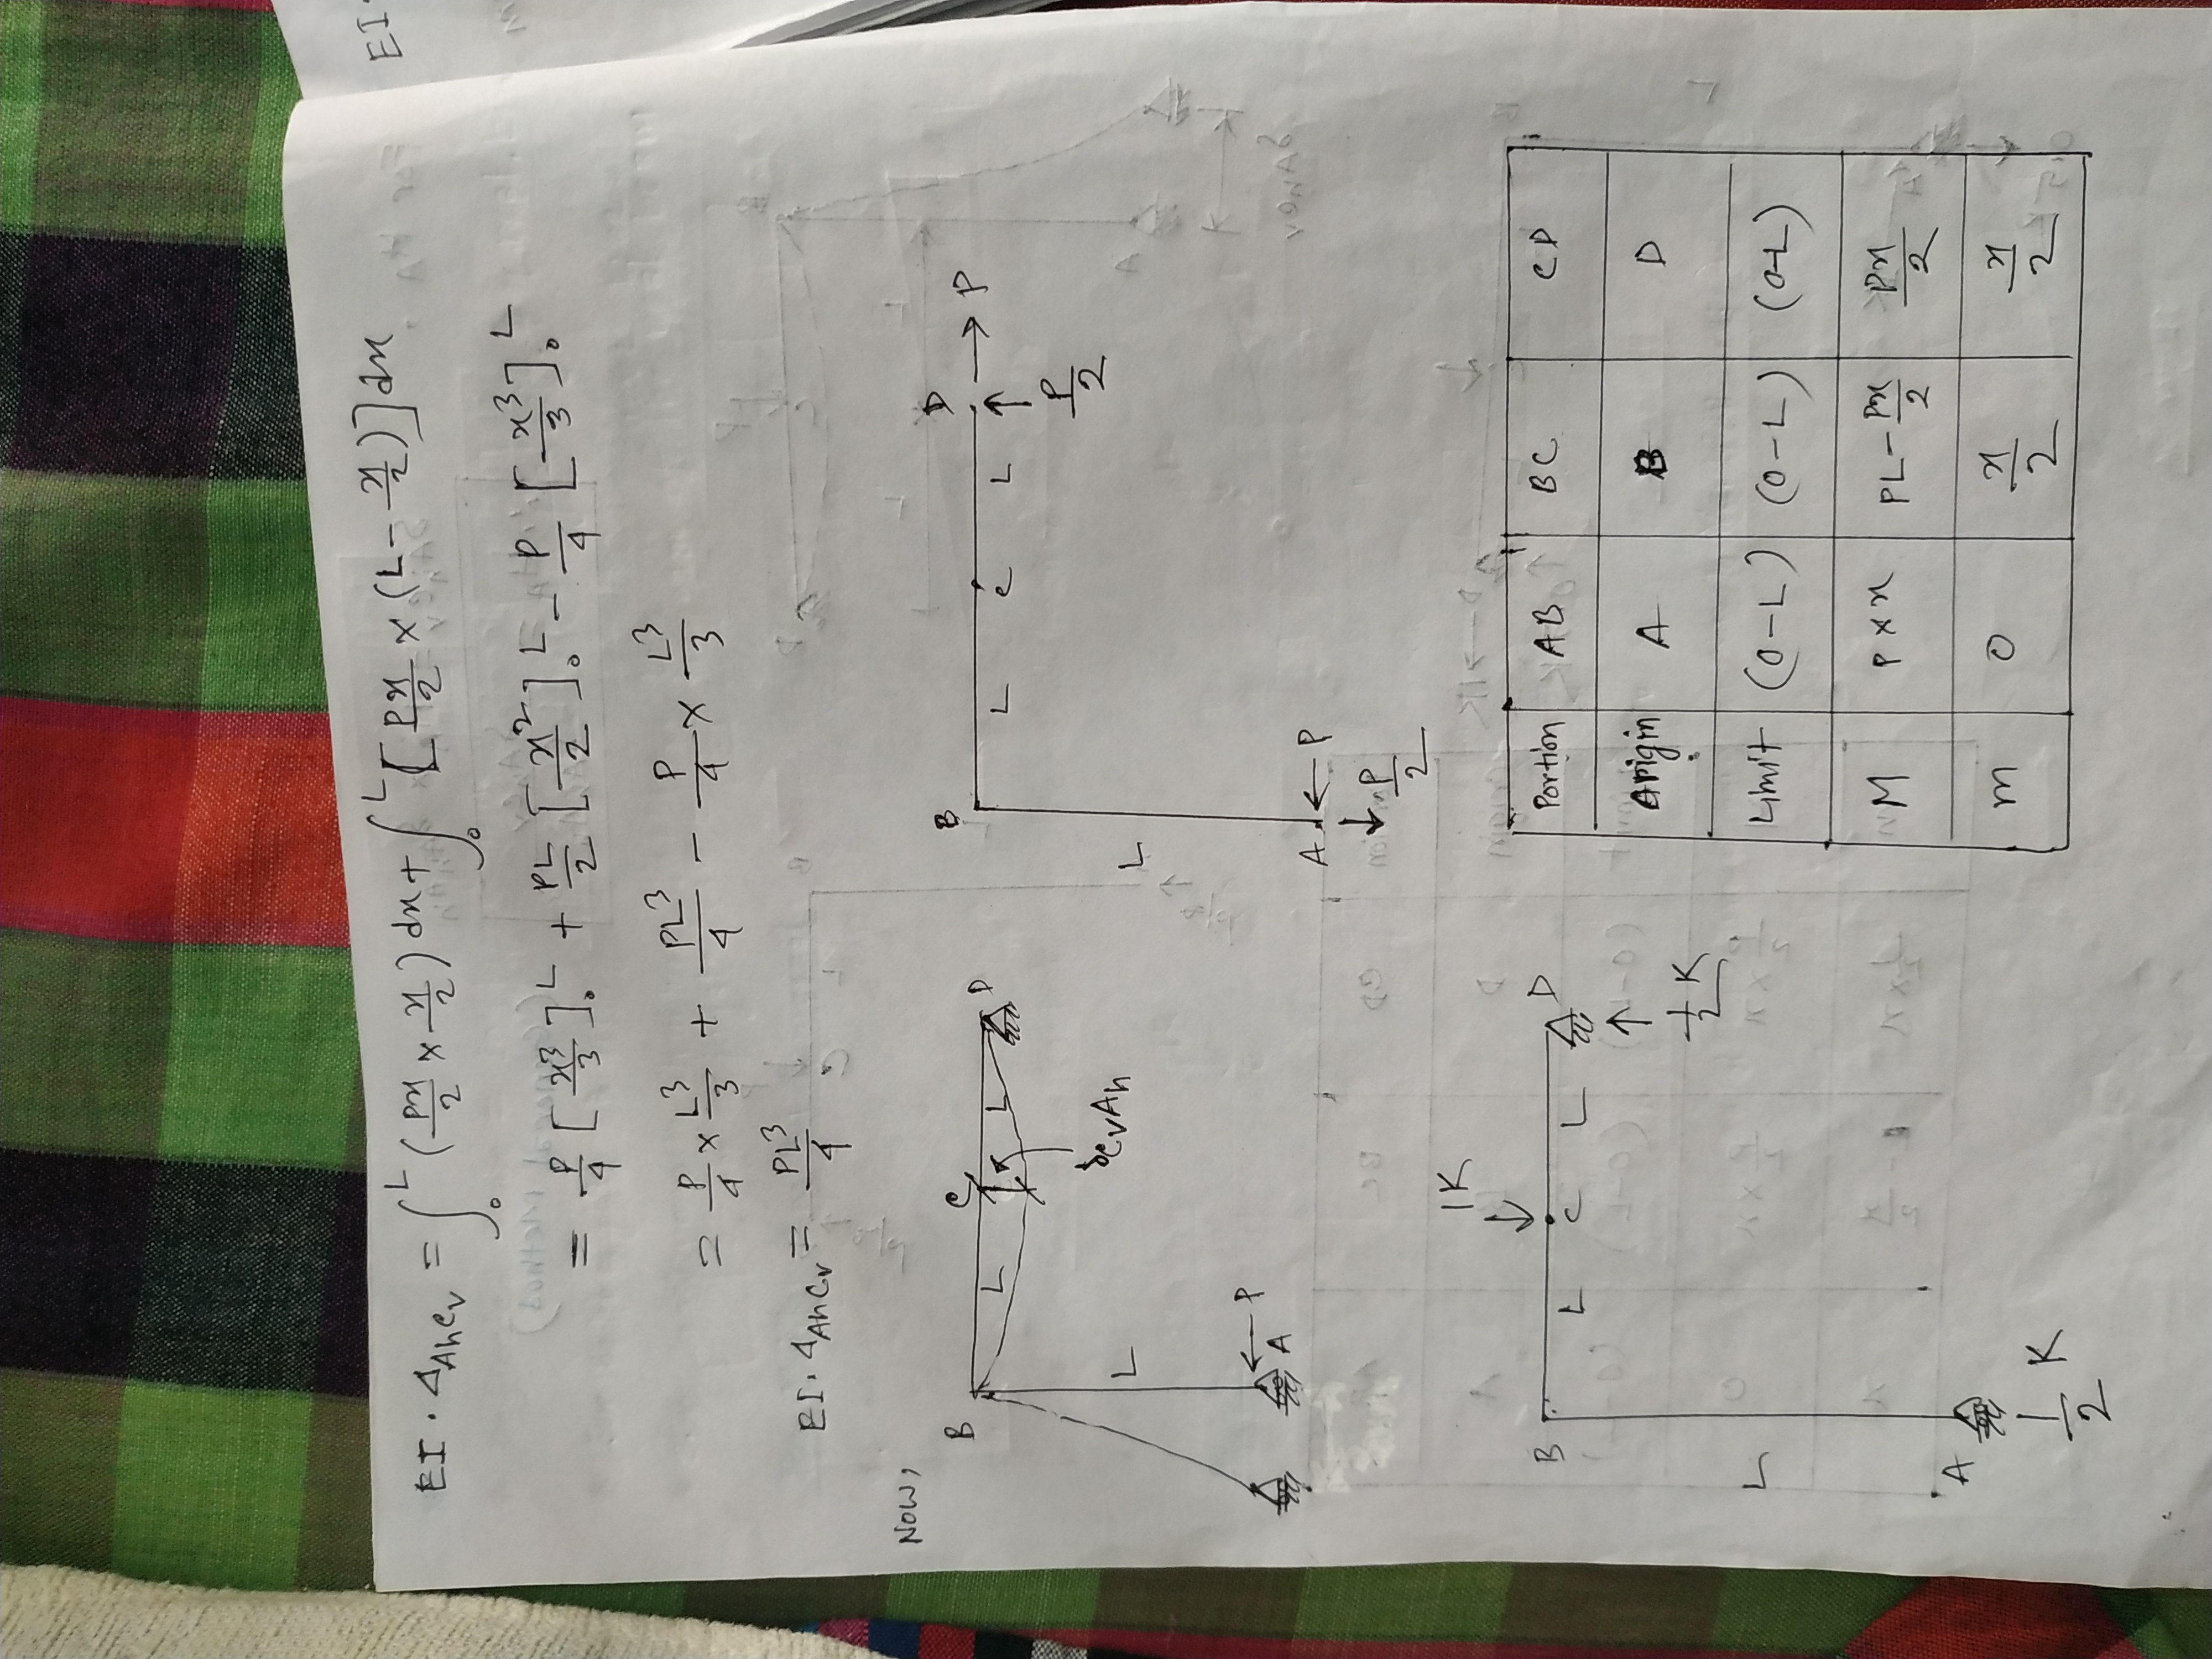 EI
EI. ΔAhCv = ∫₀ᴸ (Px/2 × x/2) dx + ∫₀ᴸ [Px/2 × (L - x/2)] dx
= P/4 [x³/3]₀ᴸ + PL/2 [x²/2]₀ᴸ - P/4 [x³/3]₀ᴸ
= P/4 × L³/3 + PL³/4 - P/4 × L³/3
EI. ΔAhCv = PL³/4
Now,
B L C L D
L
A ← P
δCvAh
B L C L D → P
↑ P/2
L
A ← P
↓ P/2
1K
B L C L D
↑ 1/2 K
L
A
1/2 K
Portion AB BC CD
Origin A B D
Limit (0-L) (0-L) (0-L)
M P×x PL-Px/2 Px/2
m 0 x/2 x/2